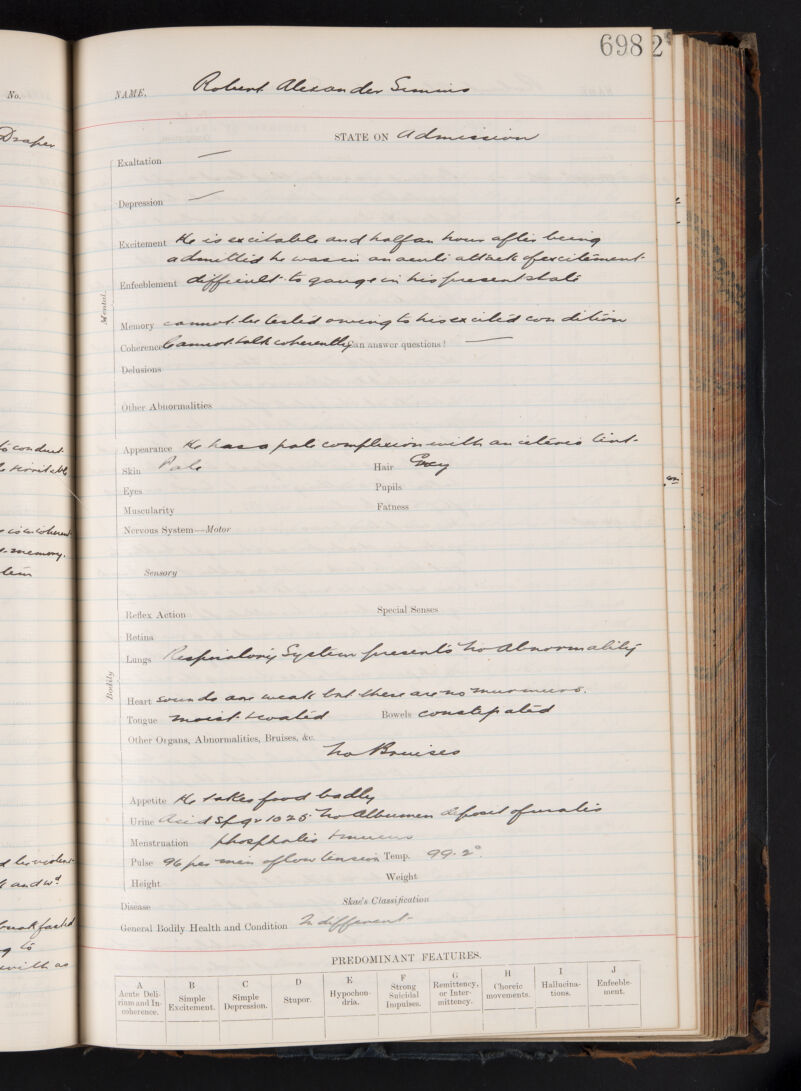 698 2
No.
Draper
NAME. Robert Alexander Simins
STATE ON Admission
Mental.
Exaltation —
Depression —
Excitement He is excitable and half an hour after being
admitted he was in an acute attack of excitement
Enfeeblement difficult to gauge in his present state
Memory cannot be tested owing to his excited condition
Coherence Cannot talk coherently Can answer questions? —
Delusions
Other Abnormalities
Bodily
Appearance He has a pale complexion with an icteric tint
Skin Pale Hair Grey
Eyes Pupils
Muscularity Fatness
Nervous System—Motor
Sensory
Reflex Action Special Senses
Retina
Lungs Respiratory System presents no abnormality
Heart sounds are weak but there are no murmurs.
Tongue moist & coated Bowels constipated
Other Organs, Abnormalities, Bruises, &c.
No Bruises
Appetite He takes food badly
Urine Acid Sp. gr 1025 no Albumen deposit of urates
Menstruation phosphates & mucus
Pulse 96 per min of low tension Temp. 99.2°
Height Weight
Disease Skae's Classification
General Bodily Health and Condition Indifferent
to conduct
memory.
PREDOMINANT FEATURES.
A Acute Delirium and Incoherence.
B Simple Excitement.
C Simple Depression.
D Stupor.
E Hypochondria.
F Strong Suicidal Impulses.
G Remittency, or Intermittency.
H Choreic movements.
I Hallucinations.
J Enfeeblement.